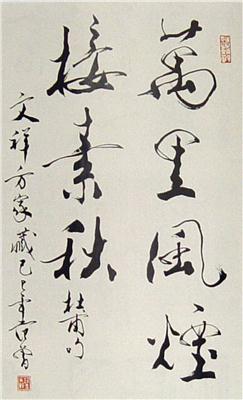 萬里風煙
接素秋
杜甫句
文祥方家藏己巳年范曾